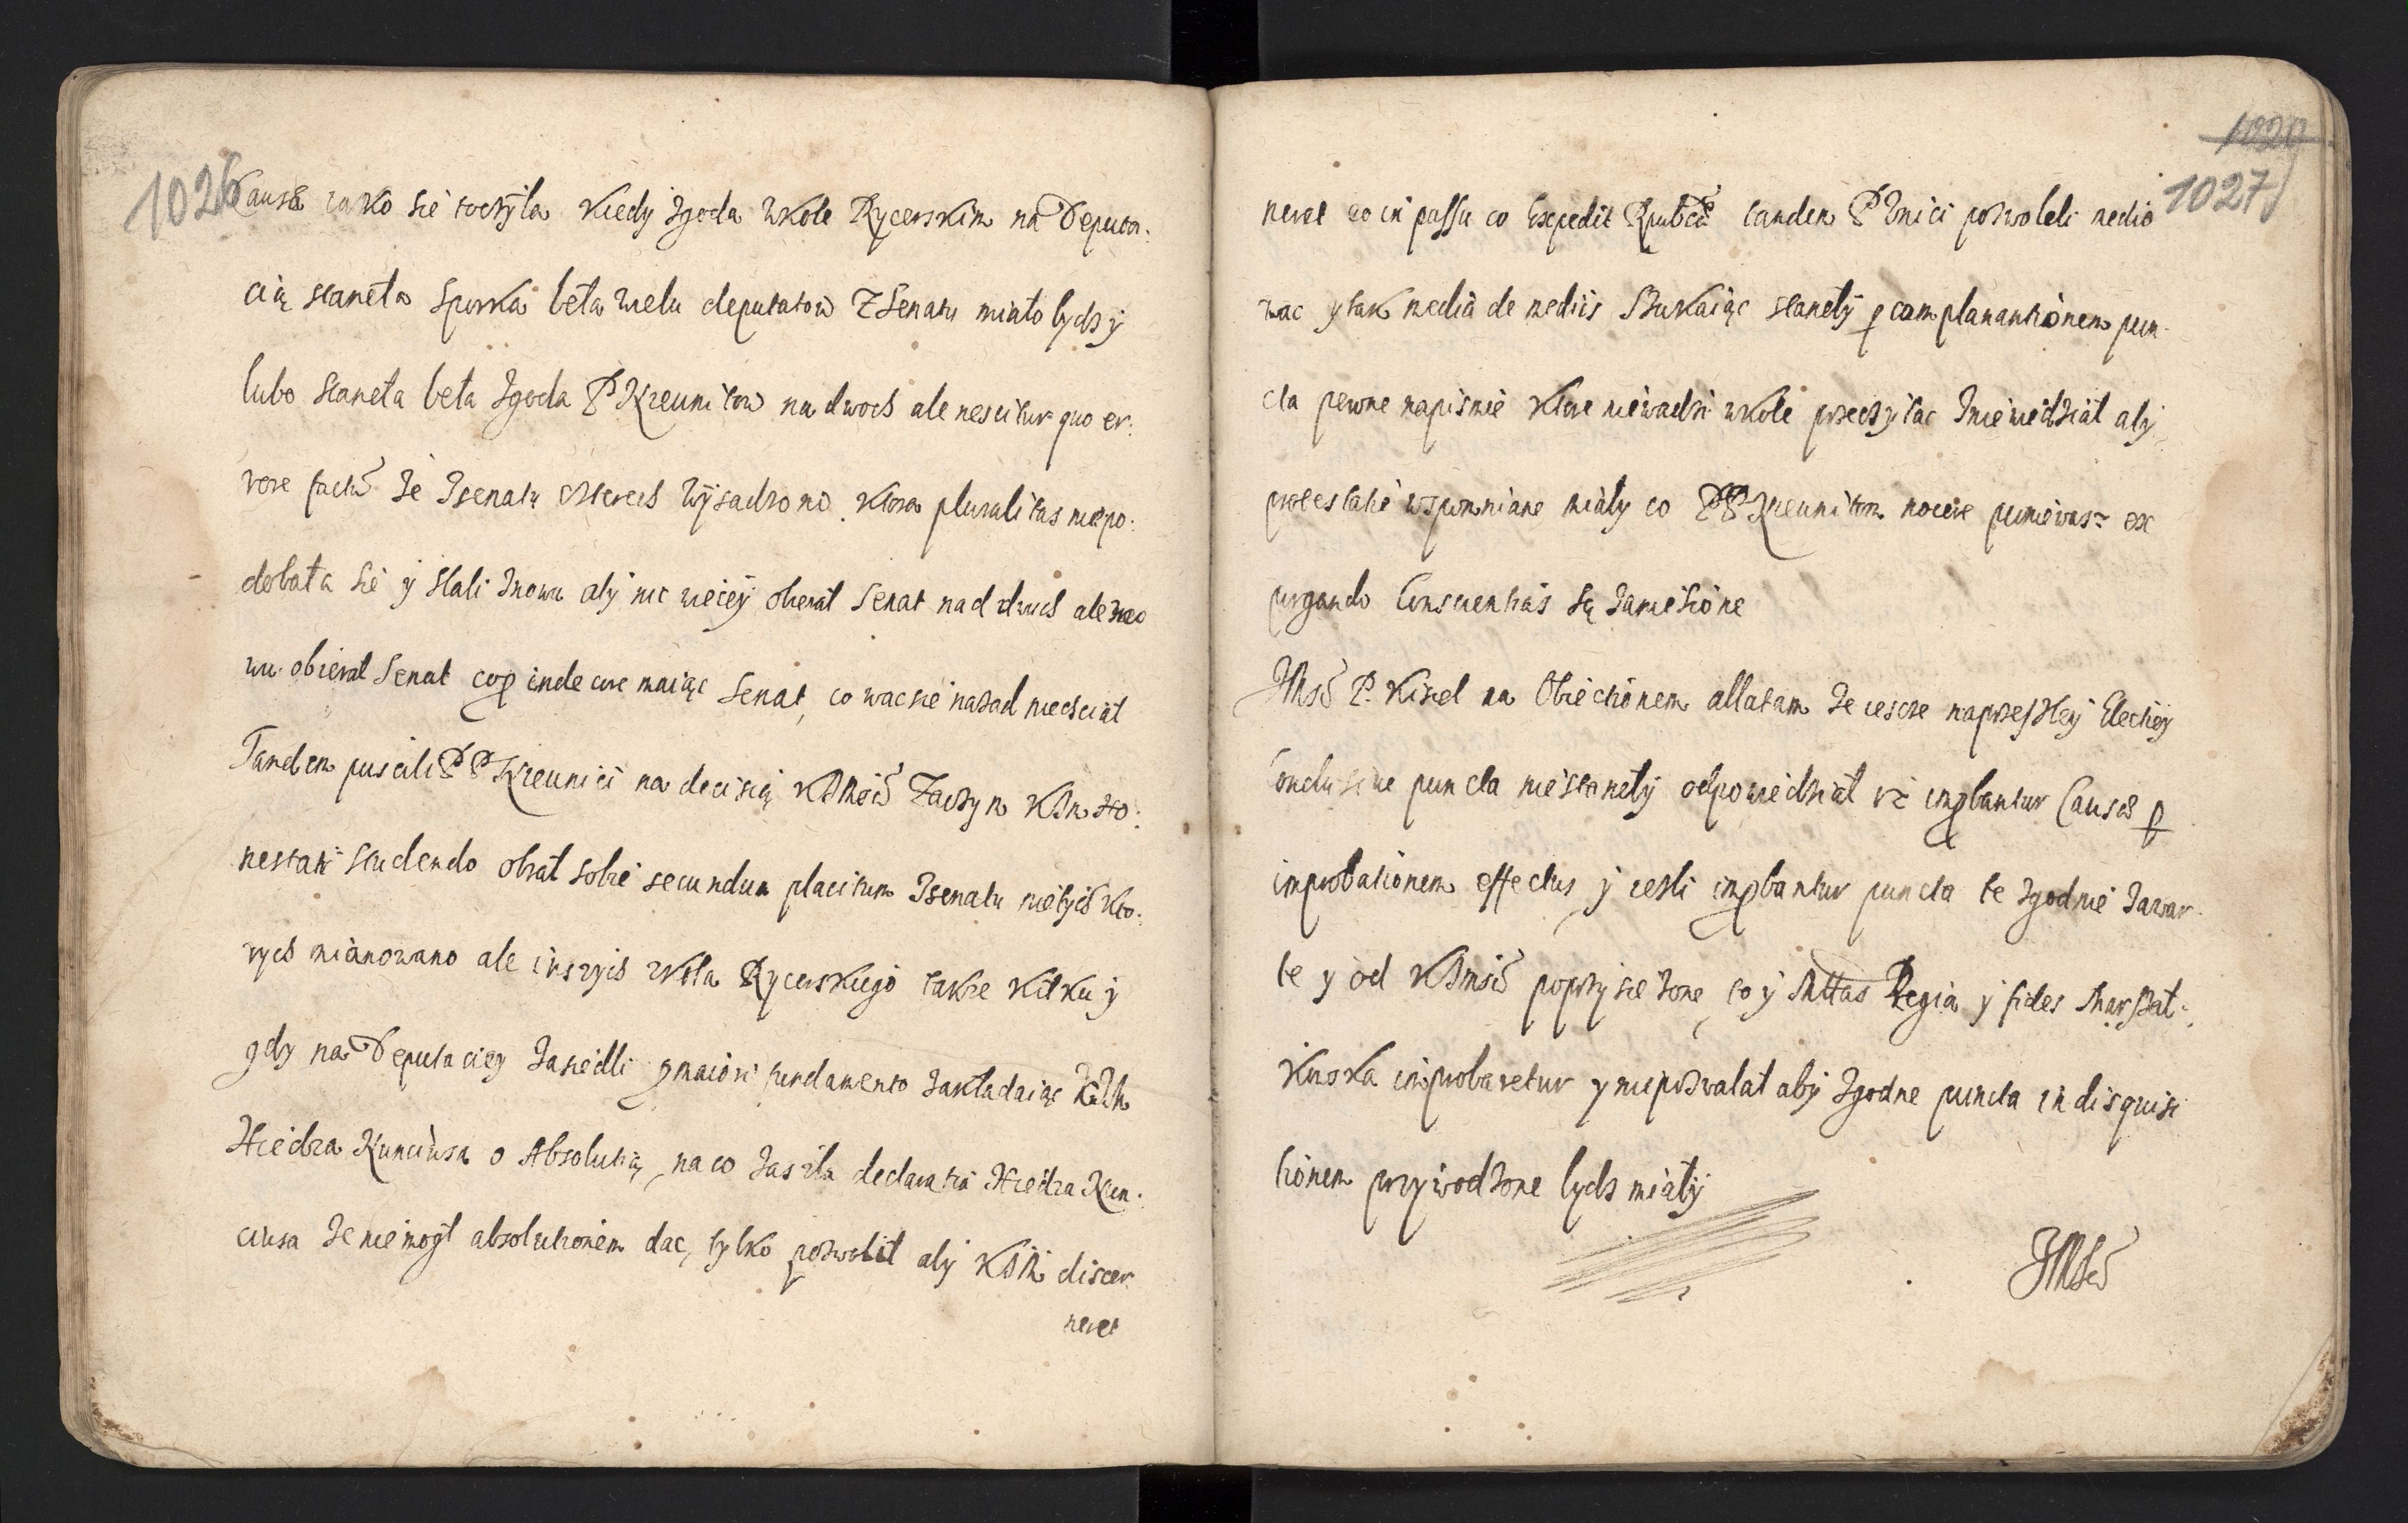 1026
Causa iako sie toczyła kiedy zgoda w kole Rycerskim na Deputa:
cią staneła sprzka beła wielu deputatow z Senatu miało bydz y
lubo staneła beła zgoda PP Xreunitow na dwoch ale nescitur quo er:
rore factũ że z senatu czterech wysadzono. Ktora pluralitas niepo:
dobała sie y słali znowu aby nic wiecey obierał Senat nad dwuch ale
wu obierał Senat inde core maiąc Senat, cowac sie nazad niechciał
Tandem puscili PP Xreunici na decisią KJMsci Zaczym KJm Ho:
nestati studendo obrał sobie secundum placitum z senatu nie tych kto:
rych mianowano ale inszych z koła Rycerskiego także kilku y
gdy na Deputaciey zasiedli maiori fundamento zakładaiąc
Xiedza Nunciusa o Absolutią, na co zaszła declaratia Xiedza Nun:
ciusa że niemogł absolutionem dac, tylko pozwolił aby KJM discer
neret
1027
neret eo in passu co Expedit Rptca tandem PP Vnici pozwoleli medio
wac y tak media de mediis szukaiąc staneły p complanantionem pun
cta pewne napismie ktore niewadzi w kole przeczytac I niewiedział aby
protestatie wspomniane miały co PP Xreunitom nocere puniewasz ex
purgando Conscientias są zaniesione
JMsc P. Kisiel na Obiectionem allatam że iescze naprzeszłey Electiey
Conclusive puncta niestaneły odpowiedział iż improbantur Causæ p
improbationem effectus y iesli improbantur puncta te zgodnie zawar
te y od KJMsci poprzysiezone, to y Mttas Regia y fides Marszał:
kowska improbaretur y niepozwalał aby zgodne puncta in disquisi
tionem przywodzone bydz miały
JMsc